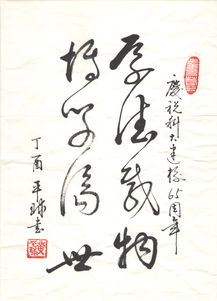 庆祝科大建校65周年
厚德载物
博学济世
丁酉 平